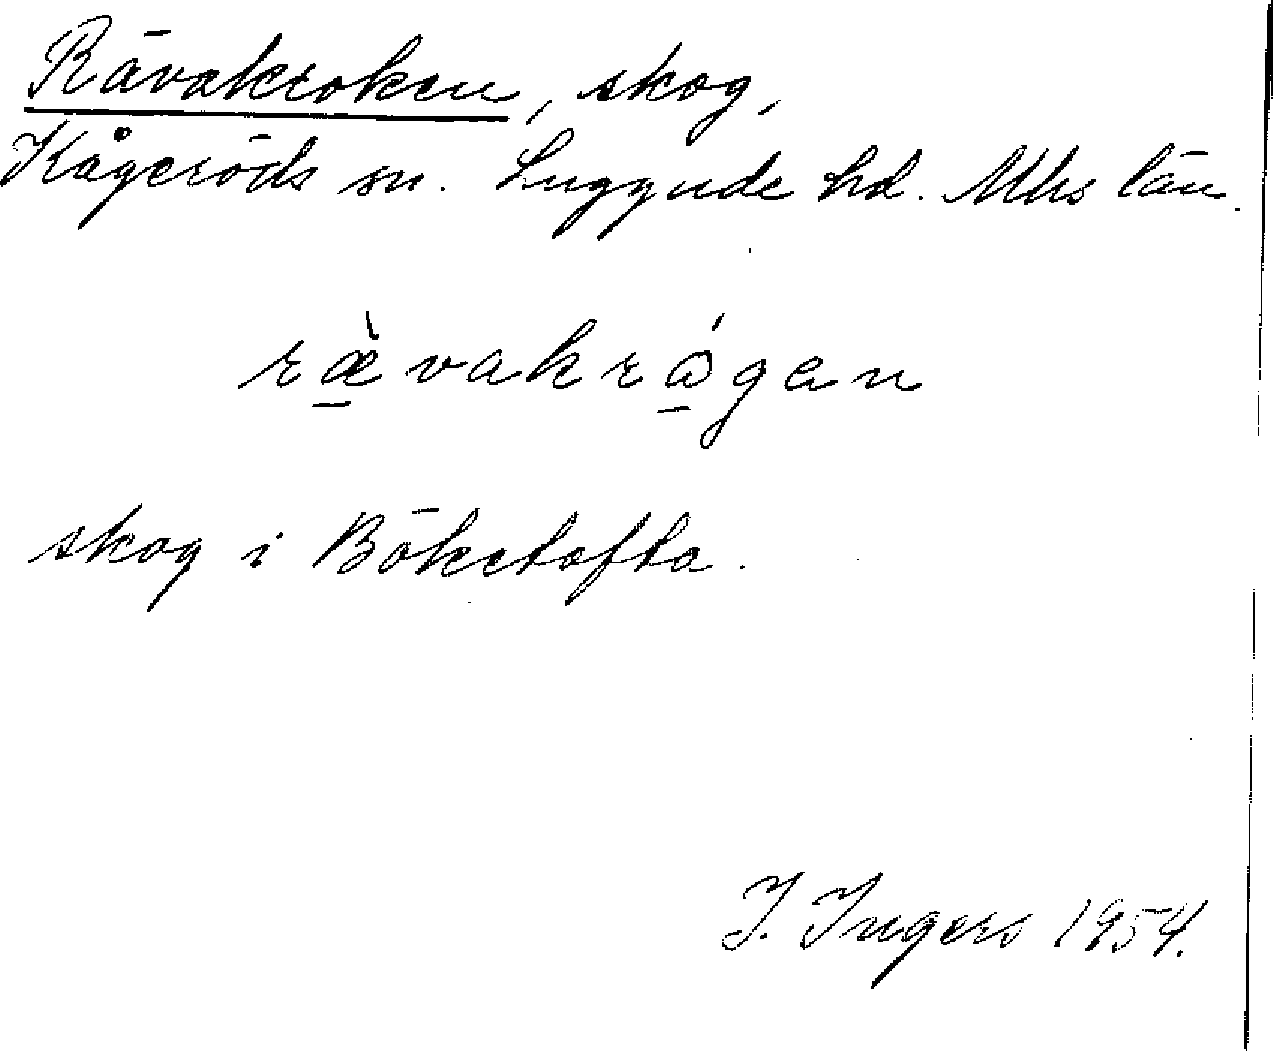 Rävakroken, skog,
Kågeröds sn. Luggude hd. Mhs län.
ræ̱̀vakrɷ̱́gan
skog i Böketofta.
I. Ingers 1954.